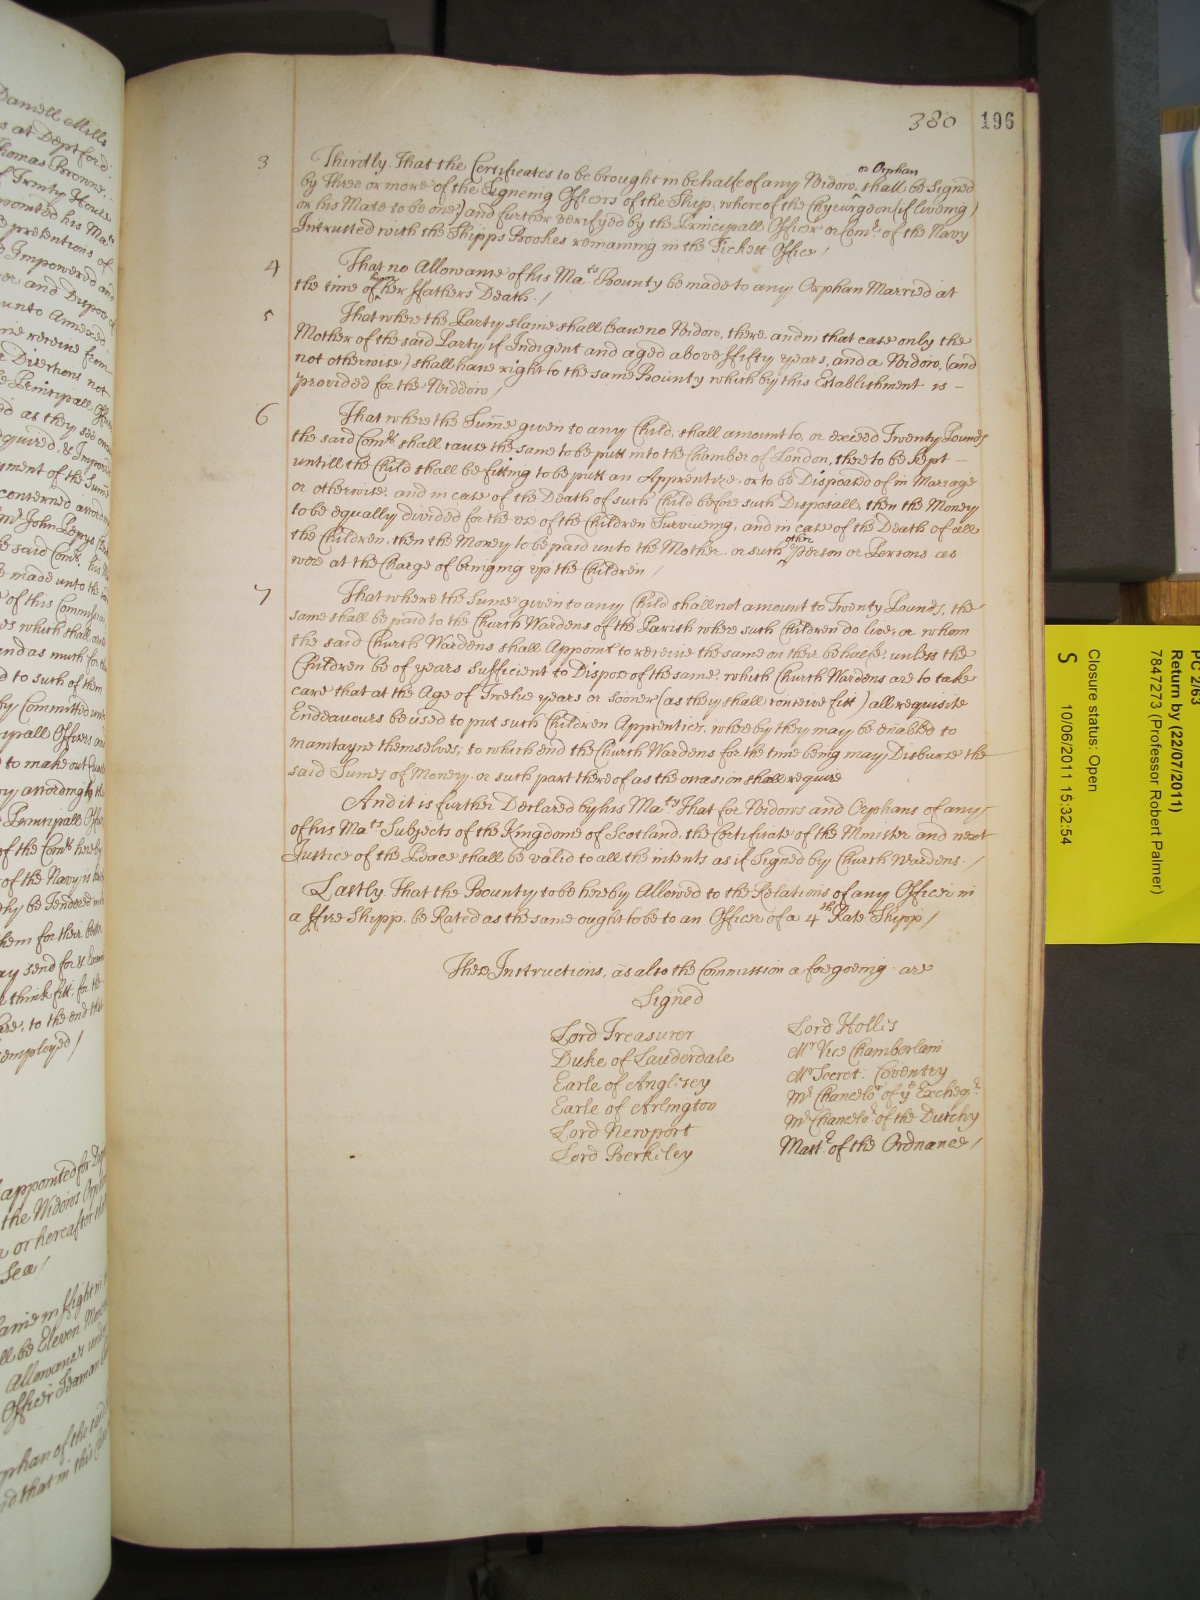 Daniell Mills
s at Deptford
Thomas Browne,
of Trinity House
wonted his Mats
pretentions of
Impowered and
unto Annexed
me receive from
Directions not
Principall Offi
ed as they see
concerned accord
John Pepys
e said Comrs. his
e made unto the
of this Commission
es which shall
and as much for the
d to such of them
by Committed
cipall Officers and
to make out
ry accordingly the
Principall Offi
of the Comrs hereby
of the Navy is
hy be Tendered
hem for their bett
ay send for & Exam
think fitt, for the
to the end the
employed /
appointed for
the Widows Orph
or hereafter
Sea /
laine in fight
ll be Eleven Mon
Allowances und
Officer Seaman
rphan of the
nd that in this
380 196
3 Thirdly. That the Certificates to be brought in behalfe of any Widow, or Orphan shall be Signed
by Three or more of the Signeing Officers of the Ship, whereof the Chyrurgeon (if liveing)
or his Mate to be one) and further verifyed by the Principall Officer or Comr. of the Navy
Intrusted with the Shipps Bookes remaining in the Tickett Office /
4 That no Allowance of his Mats. Bounty be made to any Orphan Married at
the time of her ffathers Death. /
5 That where the Party slaine shall leave no Widow, there, and in that case only the
Mother of the said Party if Indigent and aged above ffifty years, and a Widow, (and
not otherwise) shall have right to the same Bounty which by this Establishment is –
provided for the Widdow /
6 That where the Sum̄e given to any Child, shall amount to, or exceed Twenty Pounds
the said Comrs. shall cause the same to be putt into the Chamber of London, there to be kept –
untill the Child shall be fitting to be putt an Apprentize, or to be Disposed of in Marriage
or otherwise, and in case of the Death of such Child before such Disposall, then the Money
to be equally divided for the use of the Children Surviveing, and in case of the Death of all
the Children, then the Money to be paid unto the Mother, or such other Person or Persons as
were at the Charge of bringing up the Children /
7 That where the Sume given to any Child shall not amount to Twenty Pounds, the
same shall be paid to the Church Wardens of the Parish where such Children do live, or whom
the said Church Wardens shall Appoint to receive the same on their behalfe, unless the
Children be of years sufficient to Dispose of the same, which Church Wardens are to take
care that at the Age of Twelve years or sooner (as they shall conceive fitt) all requisite
Endeavours be used to put such Children Apprentices, whereby they may be enabled to
maintayne themselves, to which end the Church Wardens for the time being may Disburse the
said Sumes of Money, or such part thereof as the occasion shall require
And it is further Declared by his Mats That for Widows and Orphans of any
of his Mats Subjects of the Kingdome of Scotland, the Certificate of the Minister and next
Justice of the Peace shall be valid to all the intents as if Signed by Church Wardens. /
Lastly. That the Bounty to be hereby Allowed to the Relations of any Officer in
a ffire Shipp, be Rated as the same ought to be to an Officer of a 4th Rate Shipp /
These Instructions, as also the Commission aforegoeing are
Signed
Lord Treasurer
Duke of Lauderdale
Earle of Anglisey
Earle of Arlington
Lord Newport
Lord Berkeley
Lord Hollis
Mr Vice Chamberlain
Mr Secret: Coventry
Mr. Chancelor of ye Excheqr.
Mr. Chancelor. of the Dutchy
Mastr. of the Ordnance /
PC 2/63
Return by (22/07/2011)
7847273 (Professor Robert Palmer)
Closure status: Open
S 10/06/2011 15:32:54